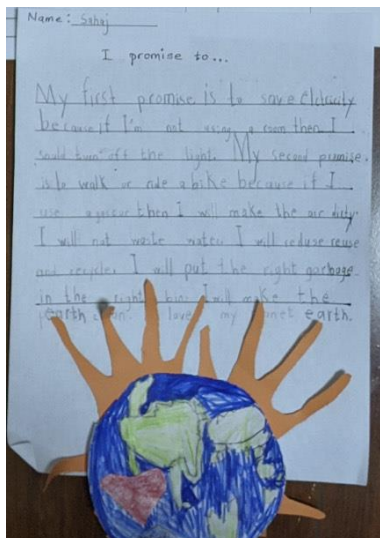 Name: Sahaj
I promise to...
My first promise is to save eldricity
because if I'm not using a room then I
sould turn off the light. My second promise.
is to walk or ride a bike because if I
use then I will make the air dirty.
I will not waste water. I will reduse reuse
and recycle. I will put the right garbage
in the right bin. I will make the
earth love my planet earth.